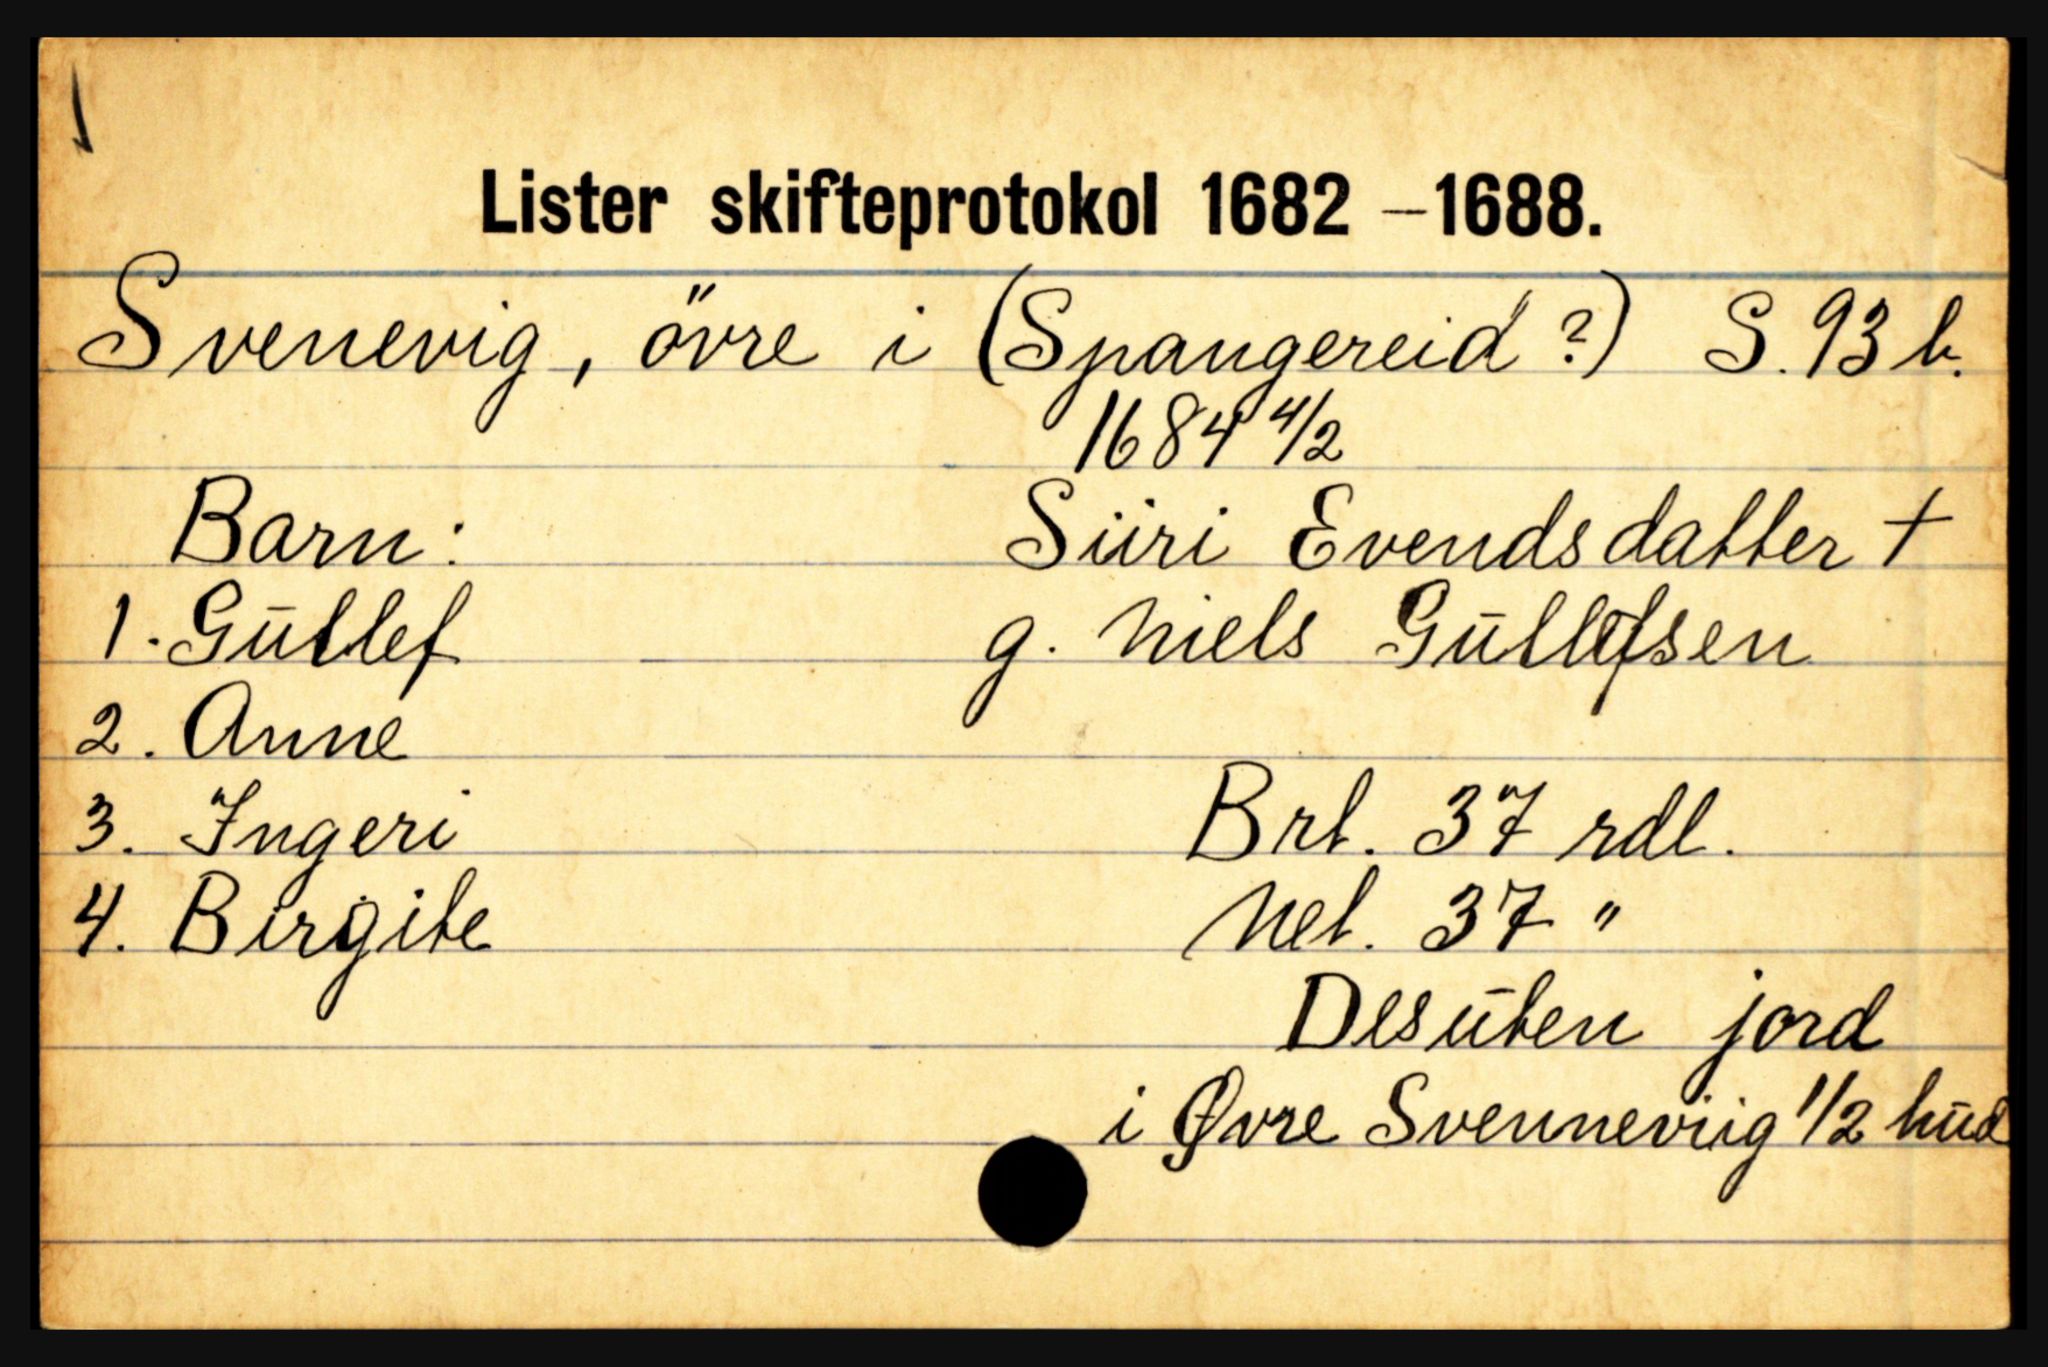 Lister skifteprotokol 1682 – 1688.
Svenevig, övre i (Spangereid ?) S. 93 b.
1684 4/2
Barn: Siiri Evendsdatter †
1. Gūllef g. Niels Gūllefsen
2. Anne
3. Ingeri Brt. 37 rdl.
4. Birgite Net. 37 "
Desūten jord
i Øvre Svenneviig 1/2 hūd